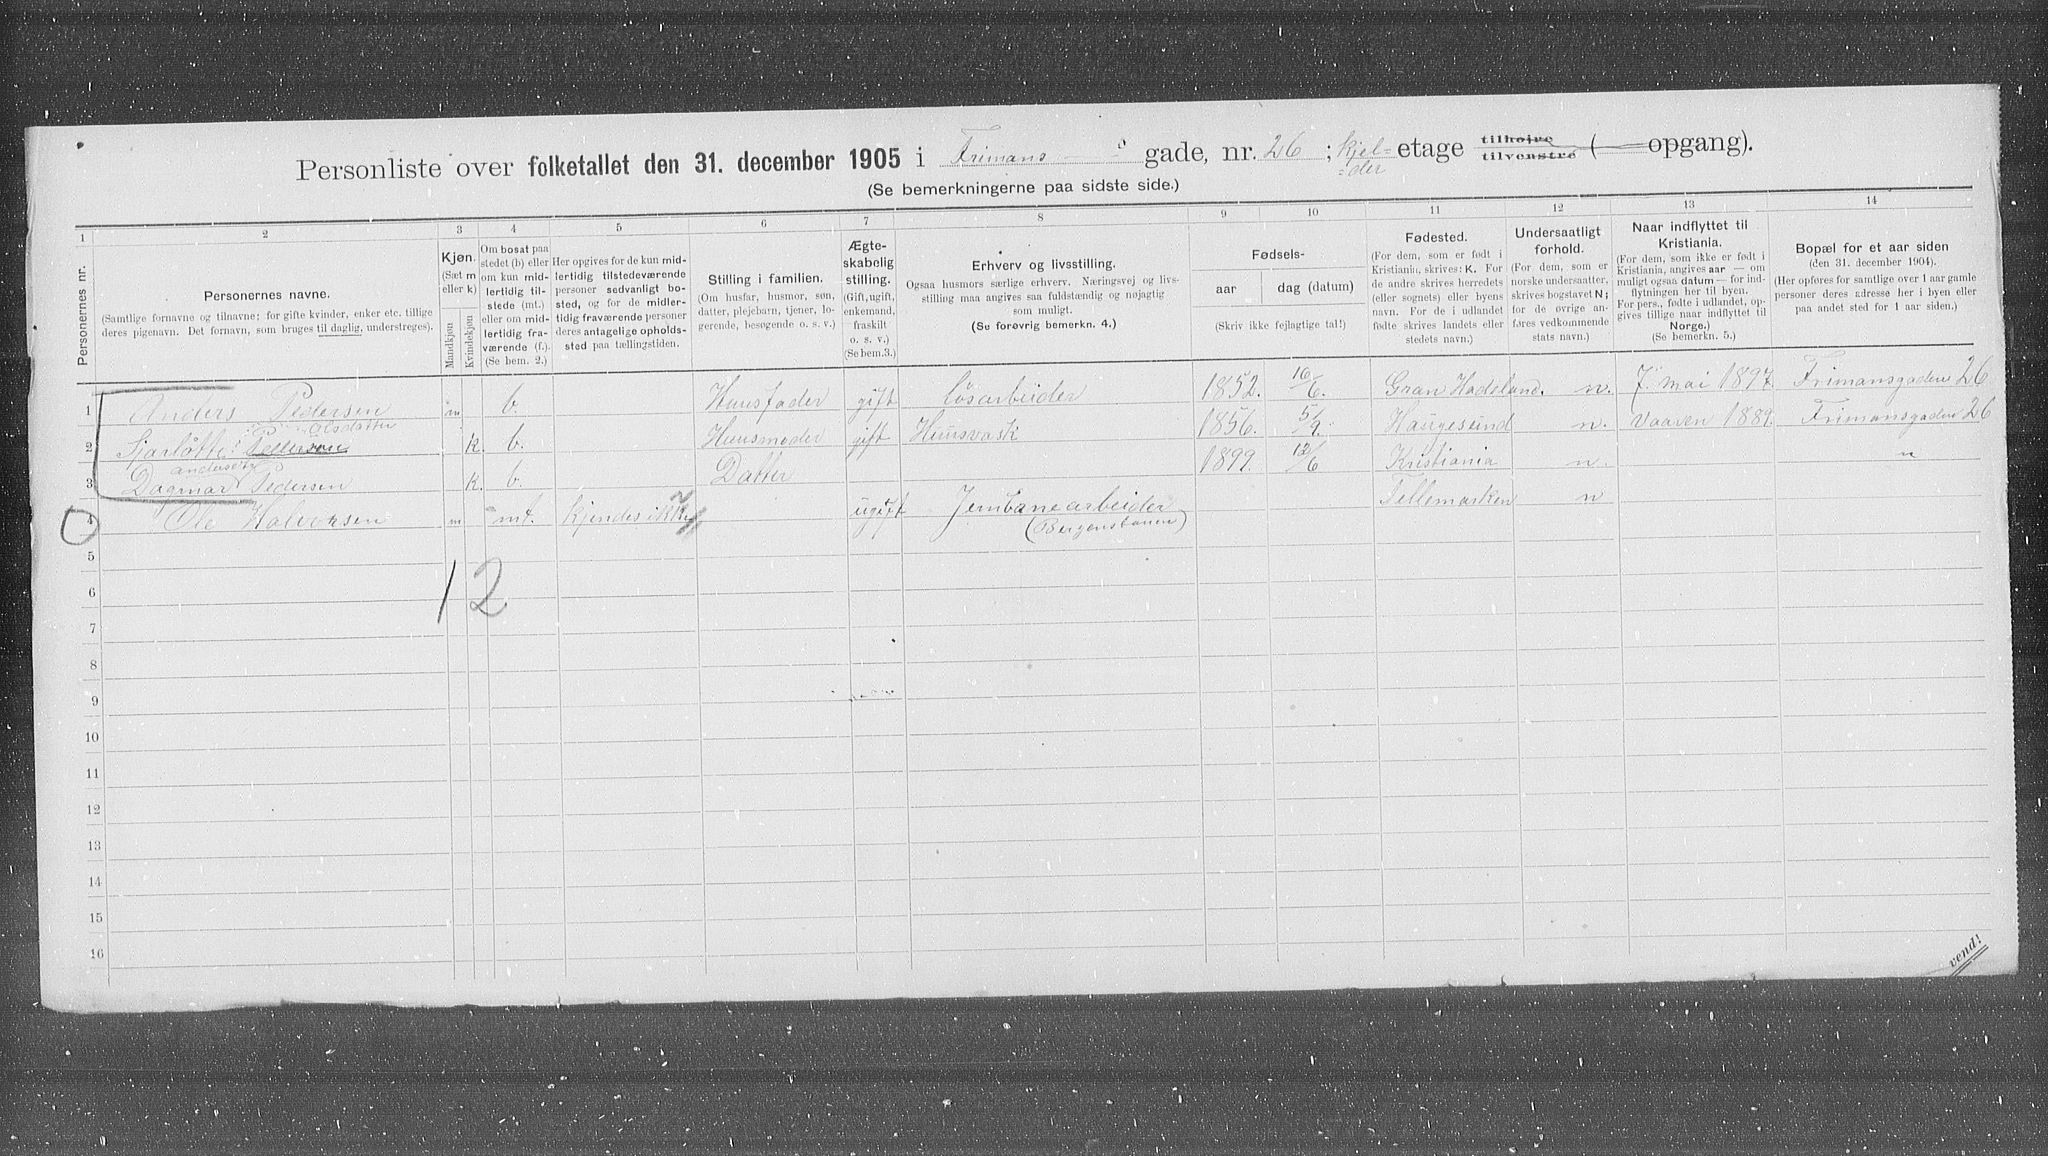 Personliste over folketallet den 31. december 1905 i Frimans gade, nr. 26 ; kjel= etage tilhøire ( opgang).
=der tilvenstre
(Se bemerkningerne paa sidste side.)
1 2 3 4 5 6 7 8 9 10 11 12 13 14
Personernes nr.
Personernes navne.
(Samtlige fornavne og tilnavne; for gifte kvinder, enker etc. tillige
deres pigenavn. Det fornavn, som bruges til daglig, understreges).
Kjøn.
(Sæt m
eller k)
Mandkjøn
Kvindekjøn
Om bosat paa
stedet (b) eller
om kun mid-
lertidig til-
stede (mt.)
eller om mid-
lertidig fra-
værende (f.).
(Se bem. 2.)
Her opgives for de kun mid-
lertidig tilstedeværende
personer sedvanligt bo-
sted, og for de midler-
tidig fraværende personer
deres antagelige opholds-
sted paa tællingstiden.
Stilling i familien.
(Om husfar, husmor, søn,
datter, plejebarn, tjener, lo-
gerende, besøgende o. s. v.)
Ægte-
skabelig
stilling.
(Gift, ugift,
enkemand,
fraskilt
o. s. v.)
(Se bem.3.)
Erhverv og livsstilling.
Ogsaa husmors særlige erhverv. Næringsvej og livs-
stilling maa angives saa fuldstændig og nøjagtig
som muligt.
(Se forøvrig bemerkn. 4.)
Fødsels-
aar dag (datum)
(Skriv ikke fejlagtige tal!)
Fødested.
(For dem, som er født i
Kristiania, skrives: K. For
de andre skrives herredets
(eller sognets) eller byens
navn. For de i udlandet
fødte skrives landets eller
stedets navn.)
Undersaatligt
forhold.
(For dem, som er
norske undersaatter,
skrives bogstavet N;
for de øvrige an-
føres vedkommende
stats navn.)
Naar indflyttet til
Kristiania.
(For dem, som ikke er født i
Kristiania, angives aar — om
muligt ogsaa datum — for ind-
flytningen her til byen.
For pers., fødte i udlandet, op-
gives tillige naar indflyttet til
Norge.)
(Se bemerkn. 5.)
Bopæl for et aar siden
(den 31. december 1904).
(Her opføres for samtlige over 1 aar gamle
personer deres adresse her i byen eller
paa andet sted for 1 aar siden.)
1 Anders Pedersen m b. Huusfader gift løsarbeider 1852. 16/6. Gran Hadeland. n. 7. mai 1897. Frimansgaden 26
Olsdatter
2 Sjarlotte Pedersen k. b. Huusmoder gift Huusvask 1856. 5/9. Haugesund n. Vaaren 1889. Frimansgaden 26
andersdtr
3 Dagmar Pedersen k. b. Datter 1899. 12/6 Kristiania n. "
4 Ole Halvorsen m mt. kjendes ikke ugift Jernbanearbeider Tellemarken n
(Bergensbanen)
5
1 2
6
7
8
9
10
11
12
13
14
15
16
vend!